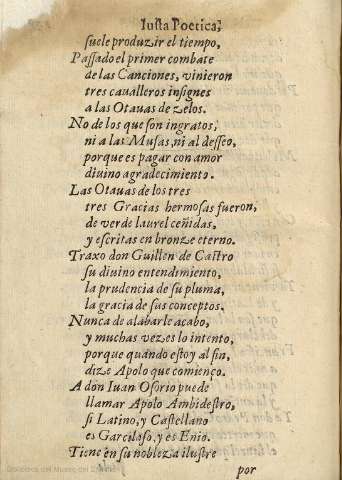 Iusta Poetica,
suele produzir el tiempo,
Passado el primer combate
de las Canciones, vinieron
tres caualleros insignes
a las Otauas de zelos.
No de los que son ingratos,
ni a las Musas, ni al desseo,
porque es pagar con amor
diuino agradecimiento.
Las Otauas de los tres
tres Gracias hermosas fueron,
de verde laurel ceñidas,
y escritas en bronze eterno.
Traxo don Guillen de Castro
su diuino entendimiento,
la prudencia de su pluma,
la gracia de sus conceptos.
Nunca de alabarle acabo,
y muchas vezes lo intento,
porque quando estoy al fin,
dize Apolo que comienço.
A don Iuan Osorio puede
llamar Apolo Ambidestro,
si Latino, y Castellano
es Garcilaso, y es Enio.
Tiene en su nobleza ilustre
por